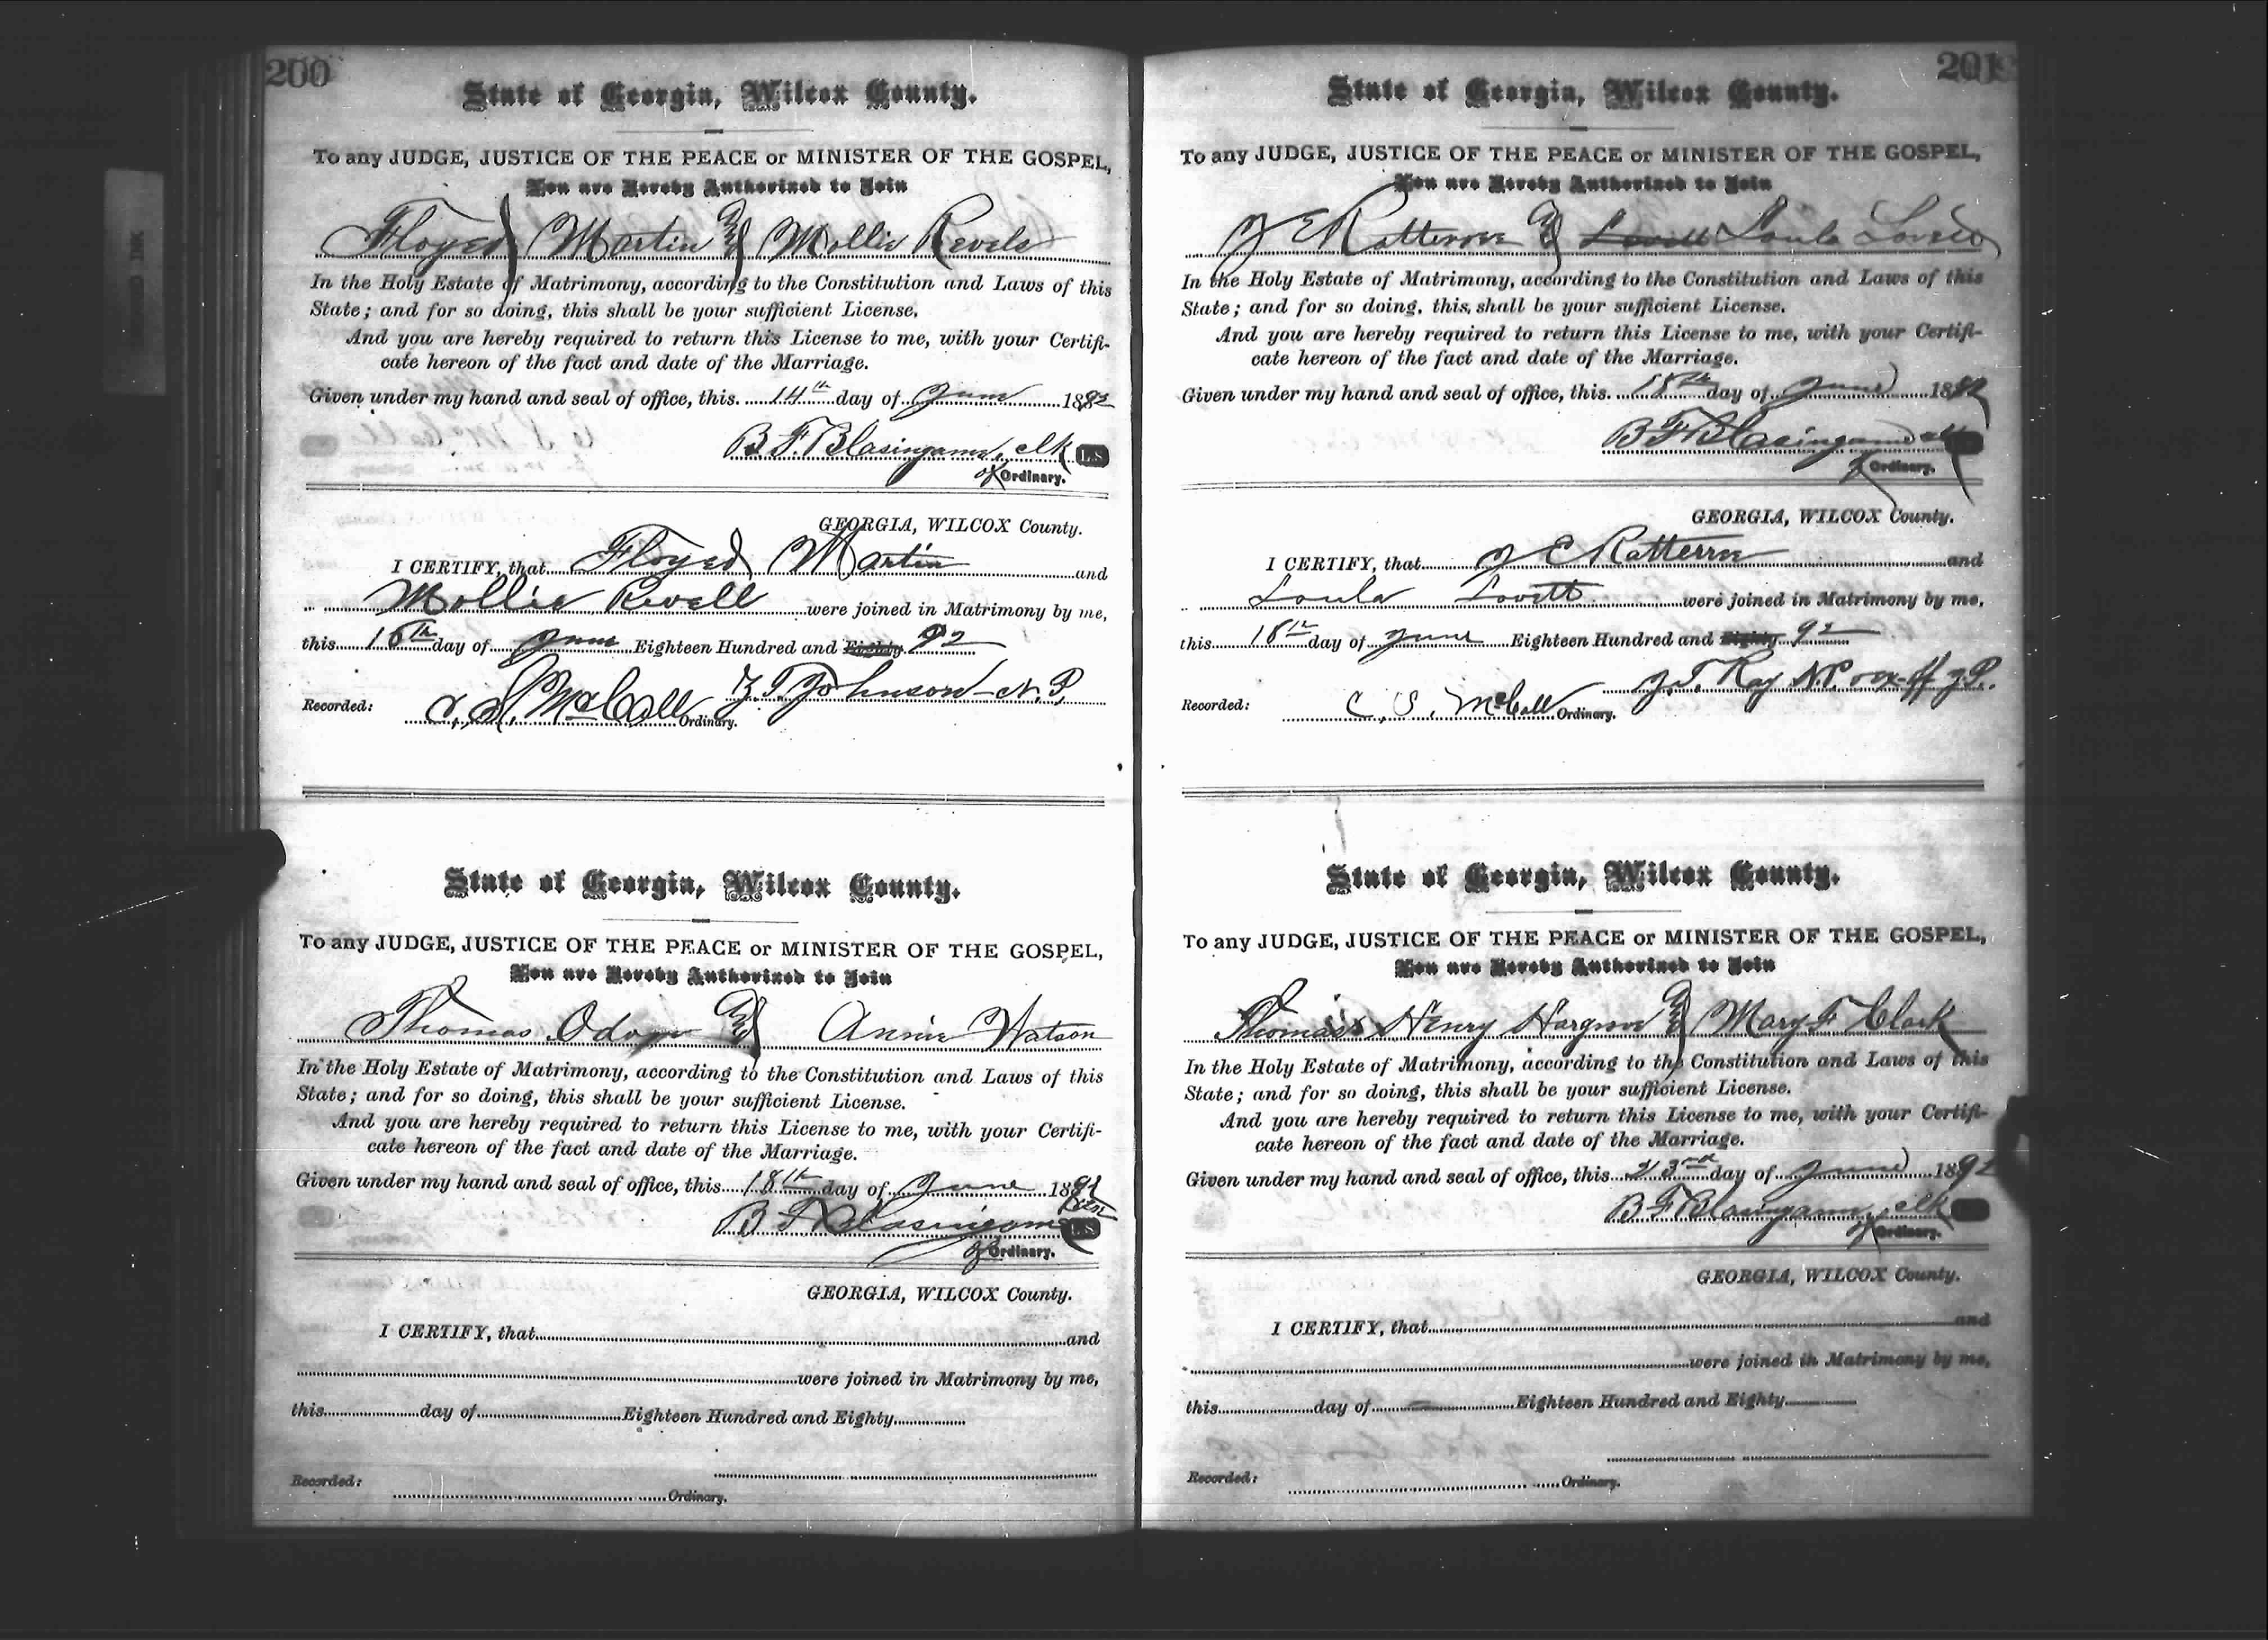 200
State of Georgia, Wilcox County.
To any JUDGE, JUSTICE OF THE PEACE or MINISTER OF THE GOSPEL,
You are Hereby Authorized to Join
Floyed Martin and Mollie Revels
In the Holy Estate of Matrimony, according to the Constitution and Laws of this
State; and for so doing, this shall be your sufficient License.
And you are hereby required to return this License to me, with your Certifi-
cate hereon of the fact and date of the Marriage.
Given under my hand and seal of office, this 14th day of June 1892
B. F. Blasingame, clk L.S.
of Ordinary.
GEORGIA, WILCOX County.
I CERTIFY, that Floyed Martin and
Mollie Revell were joined in Matrimony by me,
this 16th day of June Eighteen Hundred and Eighty 92
Z. T. Johnson - N. P.
Recorded: C. S. McCall Ordinary.
State of Georgia, Wilcox County.
To any JUDGE, JUSTICE OF THE PEACE or MINISTER OF THE GOSPEL,
You are Hereby Authorized to Join
Thomas Odom and Annie Watson
In the Holy Estate of Matrimony, according to the Constitution and Laws of this
State; and for so doing, this shall be your sufficient License.
And you are hereby required to return this License to me, with your Certifi-
cate hereon of the fact and date of the Marriage.
Given under my hand and seal of office, this 18th day of June 189
B F Blasingame L.S.
of Ordinary.
GEORGIA, WILCOX County.
I CERTIFY, that and
were joined in Matrimony by me,
this day of Eighteen Hundred and Eighty
Recorded:
Ordinary.
201
State of Georgia, Wilcox County.
To any JUDGE, JUSTICE OF THE PEACE or MINISTER OF THE GOSPEL,
You are Hereby Authorized to Join
J E Ratterree and Lovett Loula Lovett
In the Holy Estate of Matrimony, according to the Constitution and Laws of this
State; and for so doing, this shall be your sufficient License.
And you are hereby required to return this License to me, with your Certifi-
cate hereon of the fact and date of the Marriage.
Given under my hand and seal of office, this 18th day of June 1892
B F Blasingame clk
of Ordinary.
GEORGIA, WILCOX County.
I CERTIFY, that J E Ratterree and
Loula Lovett were joined in Matrimony by me,
this 18th day of June Eighteen Hundred and Eighty 92
J. T. Ray N.P. & ex-off J.P.
Recorded: C. S. McCall Ordinary.
State of Georgia, Wilcox County.
To any JUDGE, JUSTICE OF THE PEACE or MINISTER OF THE GOSPEL,
You are Hereby Authorized to Join
Thomas Henry Hargrove and Mary F Clark
In the Holy Estate of Matrimony, according to the Constitution and Laws of this
State; and for so doing, this shall be your sufficient License.
And you are hereby required to return this License to me, with your Certifi-
cate hereon of the fact and date of the Marriage.
Given under my hand and seal of office, this 23rd day of June 1892
B F Blasingame, clk
of Ordinary.
GEORGIA, WILCOX County.
I CERTIFY, that and
were joined in Matrimony by me,
this day of Eighteen Hundred and Eighty
Recorded:
Ordinary.